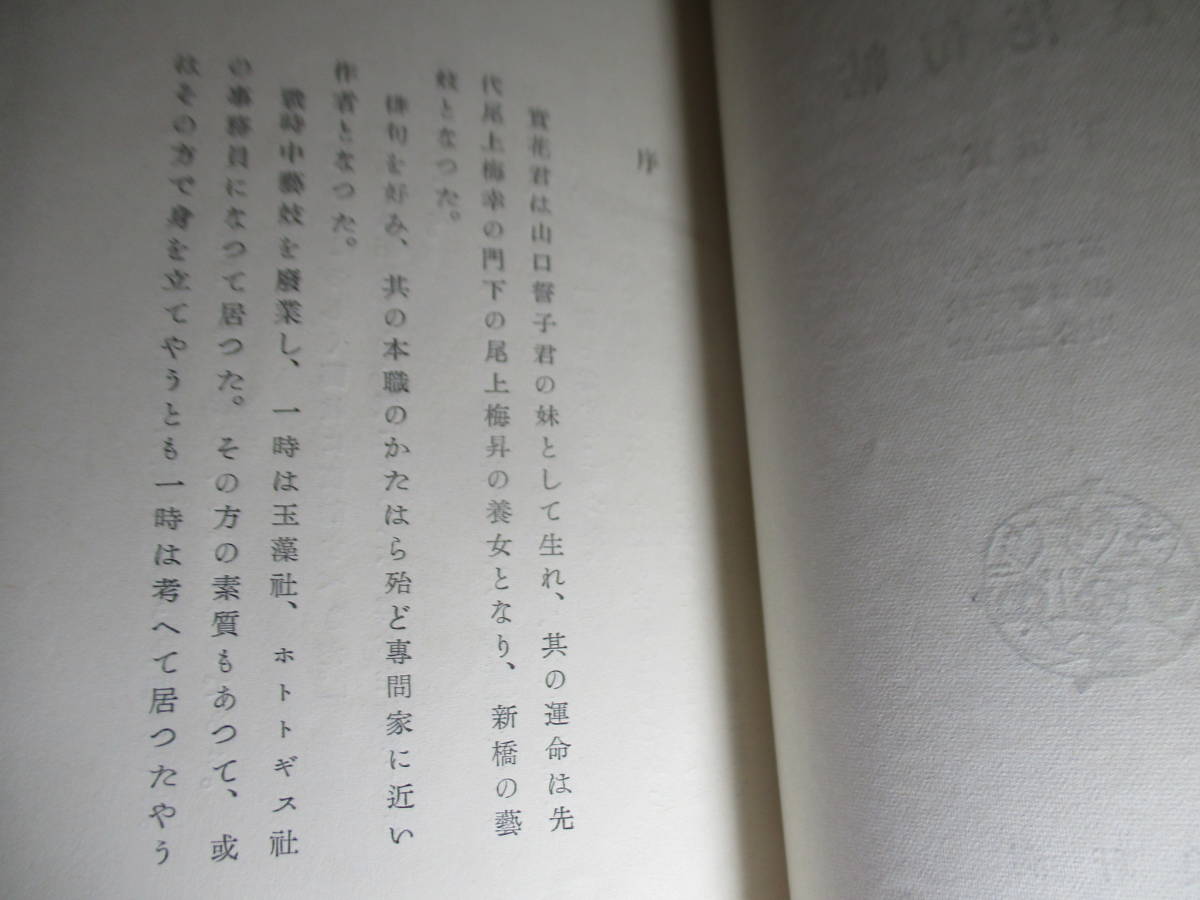 序
實花君は山口誓子君の妹として生れ、其の運命は先
代尾上梅幸の門下の尾上梅昇の養女となり、新橋の藝
妓となつた。
俳句を好み、其の本職のかたはら殆ど專問家に近い
作者となつた。
戰時中藝妓を廢業し、一時は玉藻社、ホトトギス社
の事務員になつて居つた。その方の素質もあつて、或
はその方で身を立てやうとも一時は考へて居つたやう